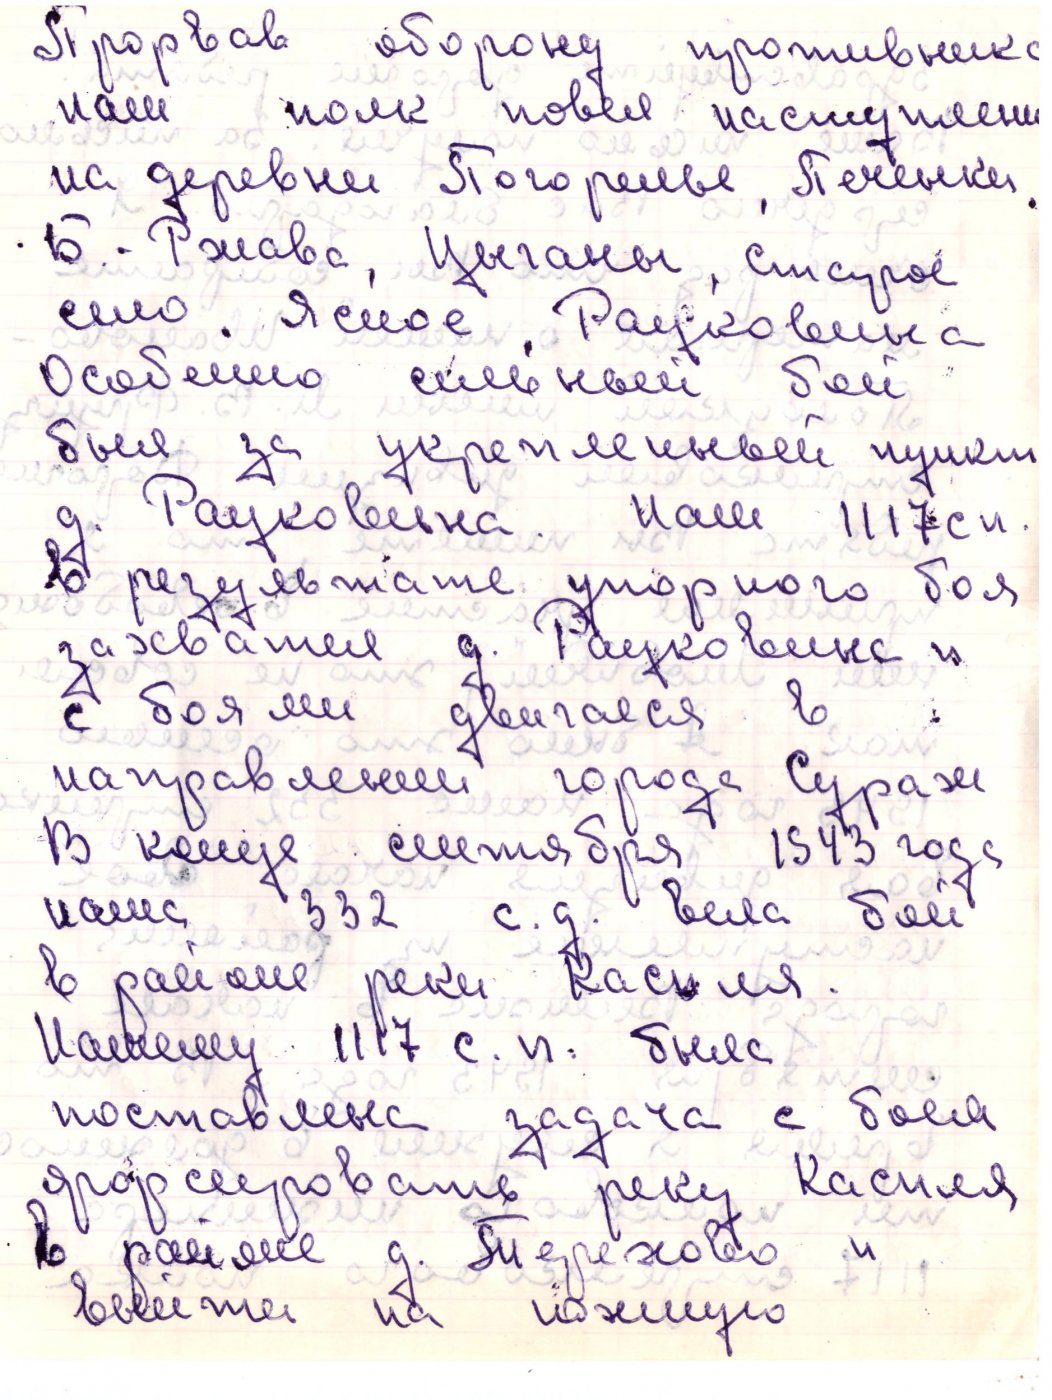 Прорвав оборону противника
наш полк повел наступлени
на деревни Погорелье, Печенки,
Б. - Ржава, Цыганы, старое
село, Ясное, Рауковина
Особенно сильный бой
был за укрепленный пункт
д. Рауковина. Наш 1117 с п.
в результате упорного боя
захватил д. Рауковина и
с боями двигался в
направлении города Сураж
В конце сентября 1943 года
наша 332 с. д. вела бой
в районе реки Каспля.
Нашему 1117 с. п. была
поставлена задача с боем
форсировать реку Каспля
в районе д. Терехово и
выйти на южную